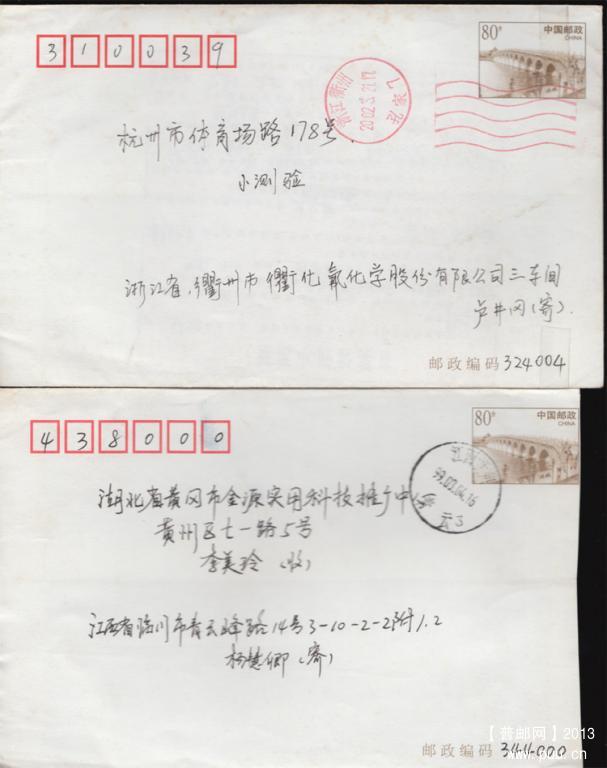 310039
80分
中国邮政
CHINA
浙江 衢州
2002.3.21.17
杭州市体育场路178号.
小测验
浙江省.衢州市衢化氟化学股份有限公司三车间
卢井冈(寄).
邮政编码 324004
438000
80分
中国邮政
CHINA
99.03.04.16
湖北省黄冈市金源实用科技推广中心
黄州区七一路5号
李美玲(收)
江西省临川市青云峰路14号3-10-2-2附1.2
杨慧卿(寄)
邮政编码 344000
【普邮网】2013